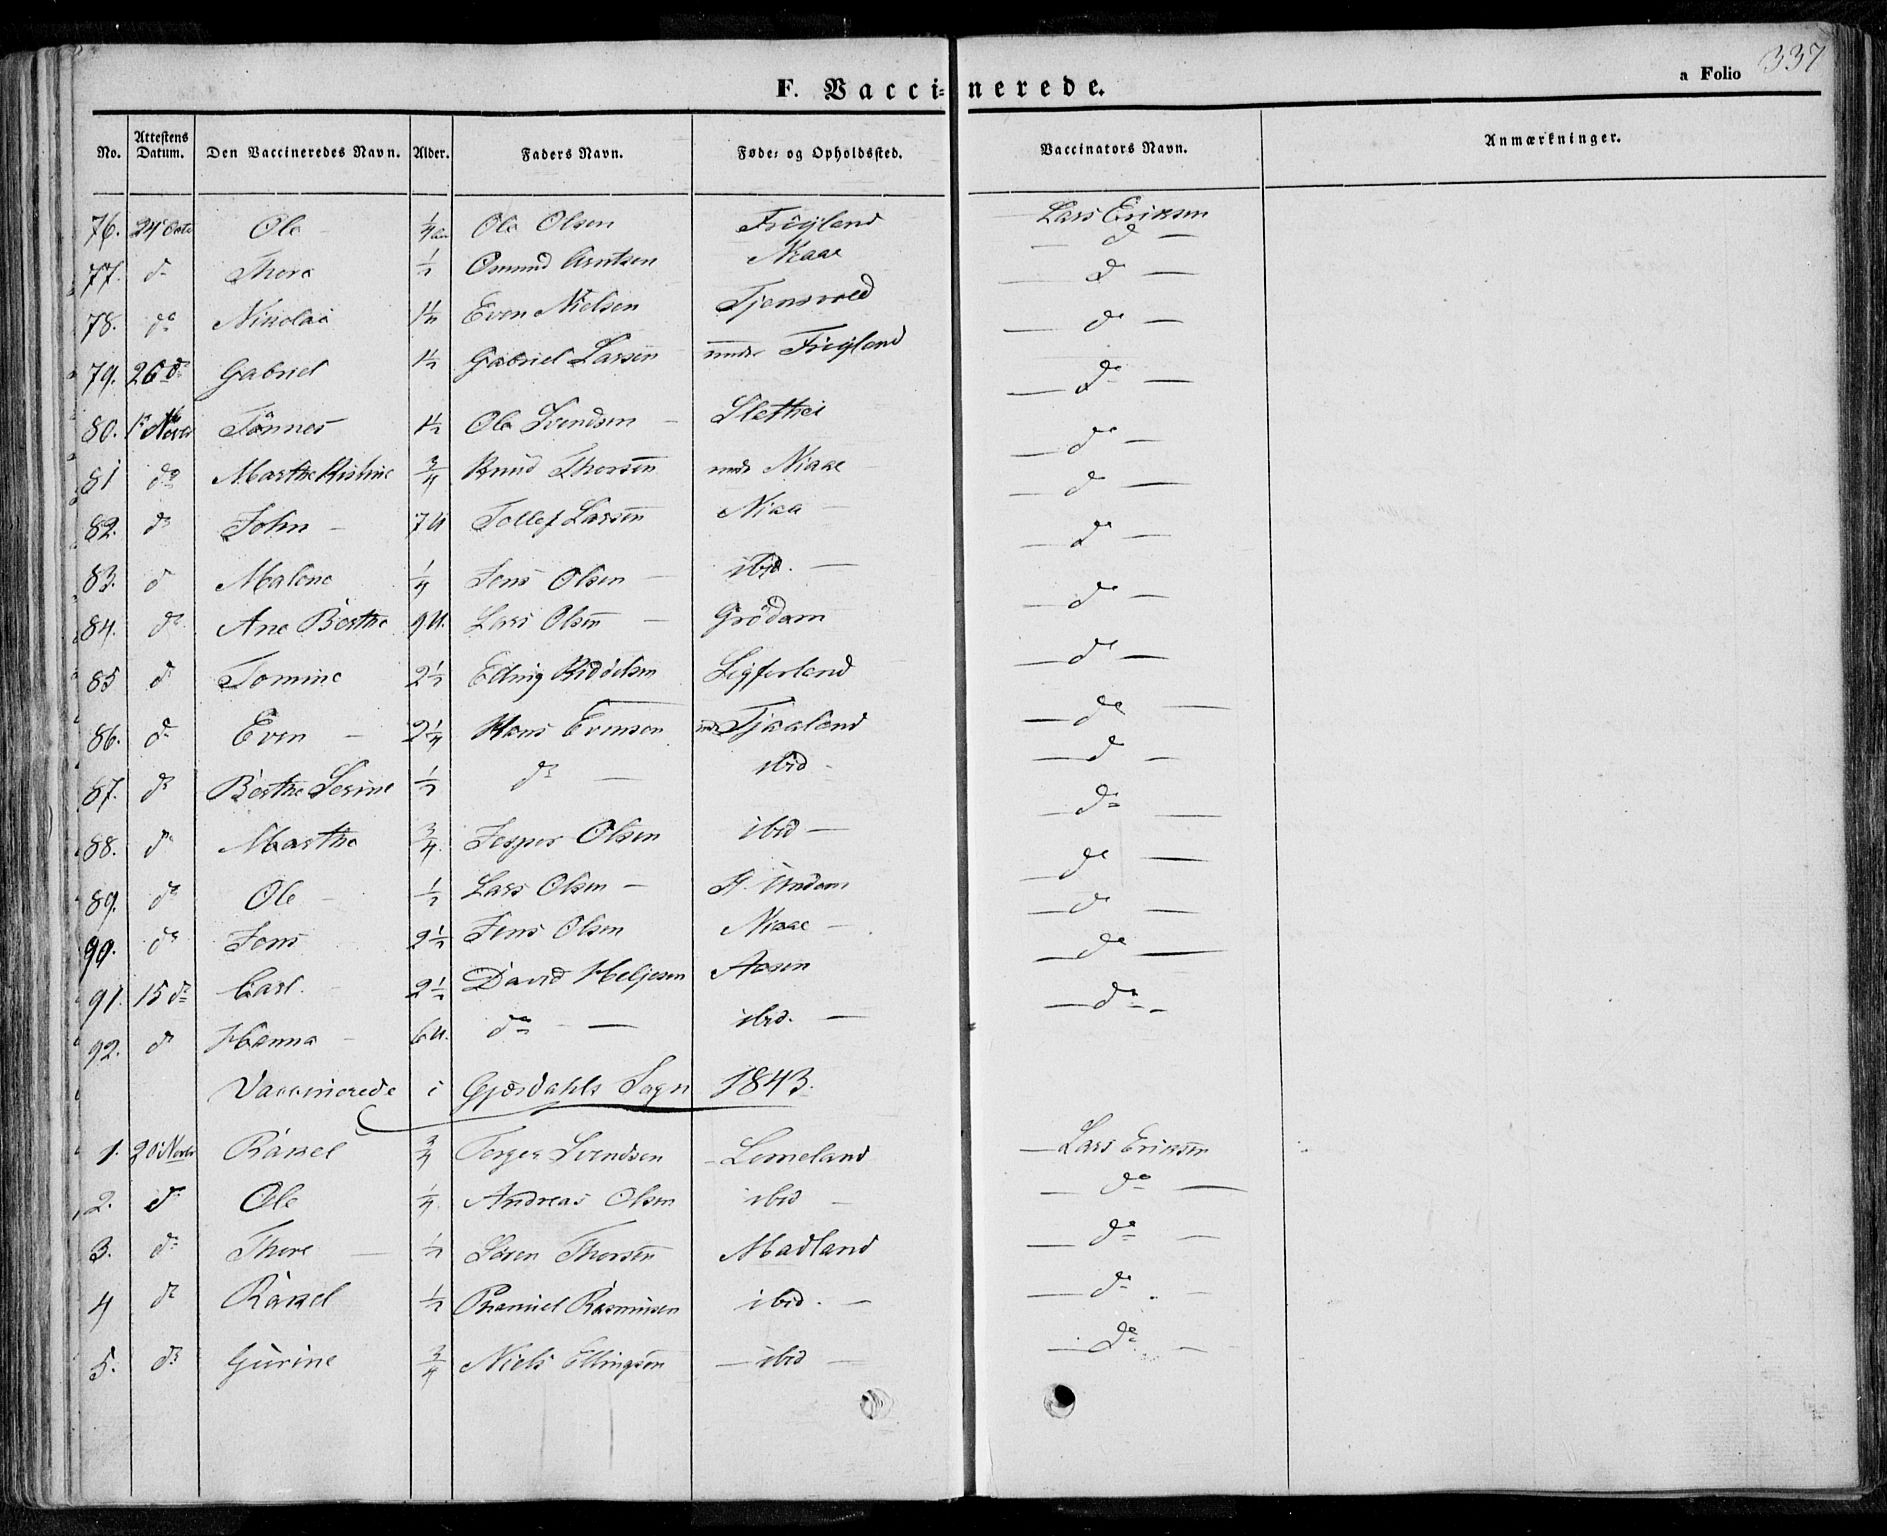 337
a Folio
F. Vaccinerede.
No. | Attestens Datum. | Den Vaccineredes Navn. | Alder. | Faders Navn. | Føde- og Opholdssted. | Vaccinators Navn. | Anmærkninger.
76. 24 Octr Ole 1/4 Ole Olsen Friglend Lars Eriksen
77. do Thore 1/2 Osmund Arntsen Niaae — do —
78. do Nikolai 1 1/2 Even Nielsen Tjensvold — do —
79. 26 do Gabriel 1 1/2 Gabriel Larsen under Friglend — do —
80. Novbr Tönnes 1 1/2 Ole Svendsen — Slethei — do —
81 do Marthe Kistine 3/4 Knud Thorsen under Niaae — do —
82. do John — 7 U Tollef Larsen Niaa — — do —
83. do Malene 1/4 Jens Olsen — ibid. — — do —
84. do Ane Berthe 9 U. Lars Olsen — Grödam — do —
85 do Tomine 2 1/2 Elling Riddelsen Ligferland — do —
86. do Even — 2 1/4 Hans Evensen Tjaaland — do —
87. do Berthe Serine 1/2 do — ibid — — do —
88. do Marthe 3/4 Jesper Olsen ibid — — do —
89. do Ole — 1/2 Lars Olsen — Undem — do —
90. do Jens 2 1/2 Jens Olsen Niaae — — do —
91. 15 do Carl. — 2 1/2 David Heljesen Aasen — do —
92. do Hanna — 6 U. do — ibid. — — do —
Vaccinerede i Gjesdahls Sogn 1843.
1. 20 Novbr Rakkel 3/4 Torger Svendsen — Limeland — Lars Eriksen
2. do Ole 1/4 Andreas Olsen ibid — — do —
3. do Thore — 1/2 Sören Thorsen Madland — do —
4 do Rakkel 1/2 Phanuel Rasmusen ibid. — — do —
5. do Gurine 3/4 Niels Ellingsen — ibid — — do —